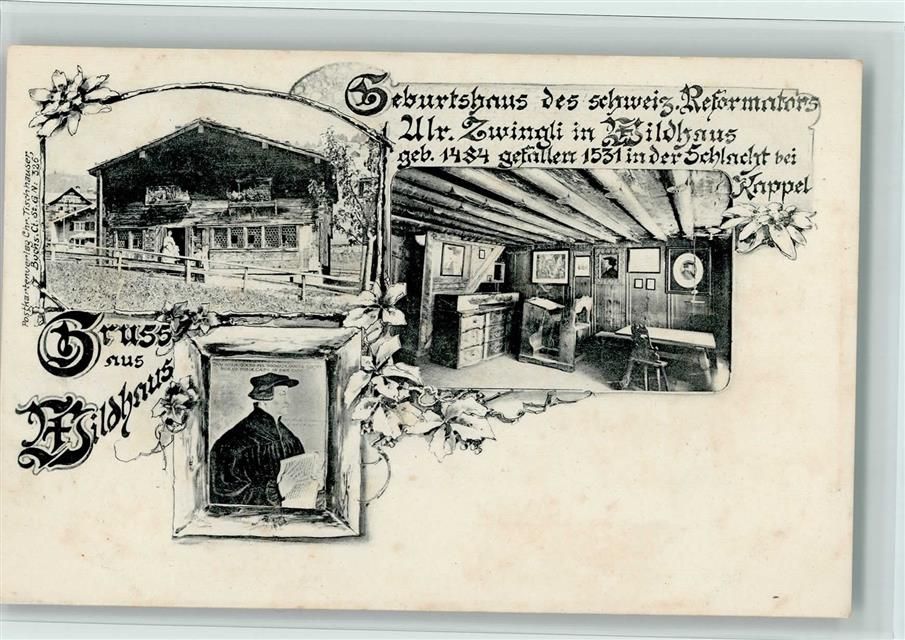 Geburtshaus des schweiz. Reformators
Ulr. Zwingli in Wildhaus
geb. 1484 gefallen 1531 in der Schlacht bei
Kappel
Postkartenverlag Chr. Tischhauser,
Buchs. Ct. St. G. N: 326
Gruss
aus
Wildhaus